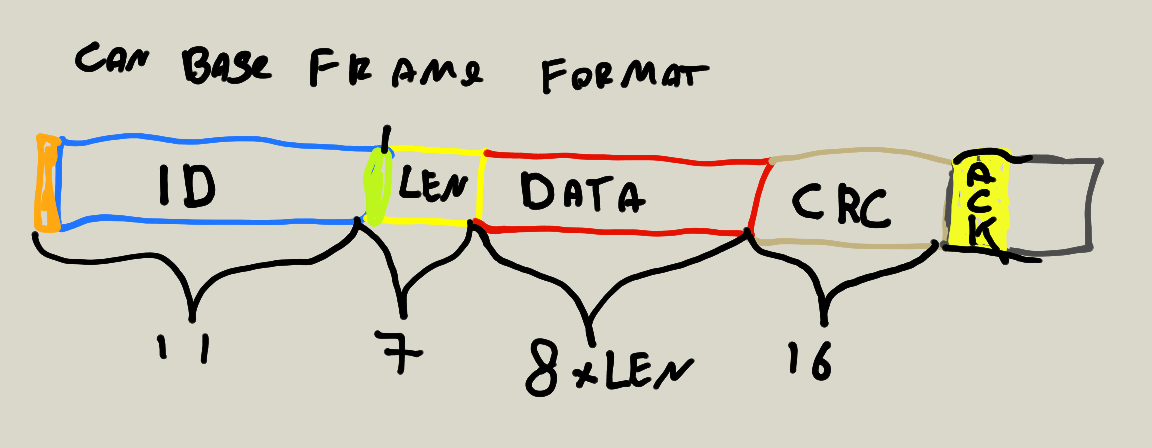 CAN BASE FRAME FORMAT
ID LEN DATA CRC ACK
11 7 8xLEN 16